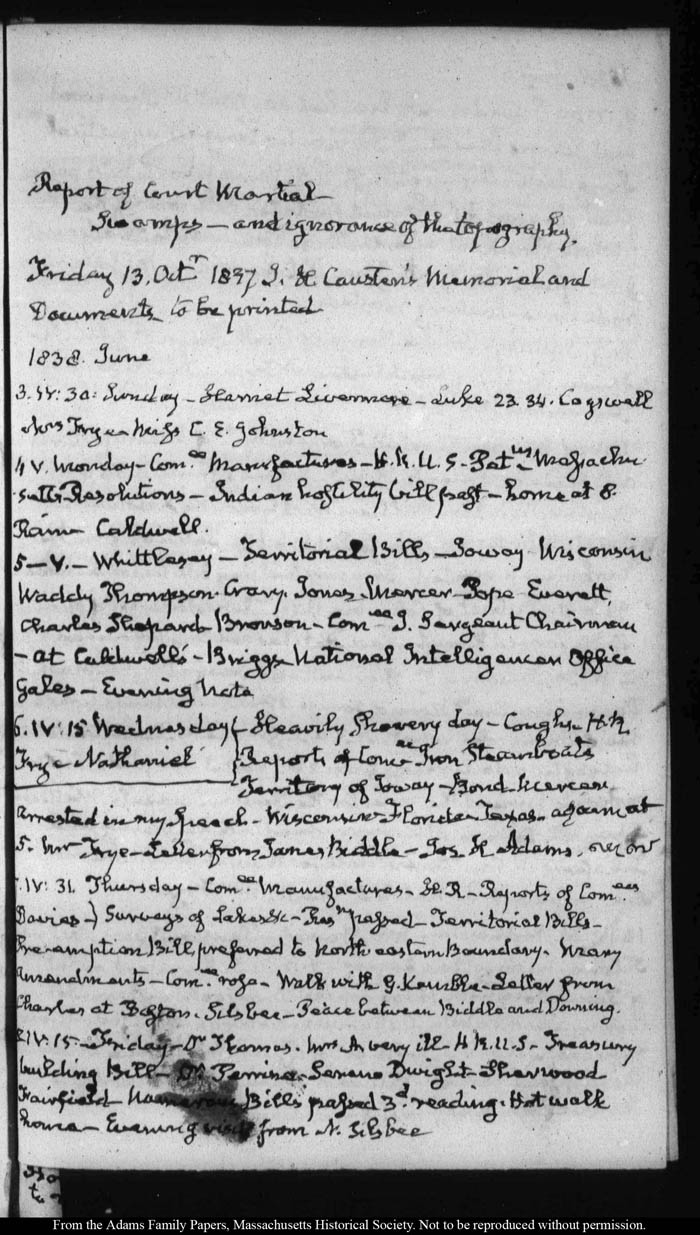 Report of Court Martial—
Swamps—and ignorance of the topography.
Friday 13. Octr 1837 J. H Causten's Memorial and
Documents to be printed
1838. June
3. IV: 30: Sunday—Harriet Livermore—Luke 23. 34. Cogswell
Mrs Frye—Miss C. E. Johnston
4 V. Monday—Comee Manufactures—H.R.U.S—
setts Resolutions—Indian hostility bill past—home at 8.
Rain— Caldwell.
5—V.—Whittlesey—Territorial Bills—Ioway Wisconsin
Waddy Thompson. Crary. Jones. Mercer—Pope Everett,
Charles Shepard Bronson—Comee J. Sergeant Chairman
—at Caldwell's—Briggs National Intelligencer Office
Gales—Evening Nota
6. IV: 15 Wednesday Heavily Showery day—Cough—H.R
Frye Nathaniel Reports of Comee Iron Steamboats
Territory of Ioway—Bond. Mercer
arrested in my Speech—Wisconsin Florida—Texas. adjourn at
5. Mr Frye—Letter from James Biddle—Jos. H Adams.
IV: 31. Thursday—Comee Manufactures—H.R—Reports of Comees
Davies—Surveys of Lakes &c—Resn passed—Territorial Bills—
Pre-emption Bill, preferred to North eastern Boundary. Many
amendments—Comee rose—Walk with G. Kemble—Letter from
Charles at Boston. Silsbee—Peace between Biddle and Downing.
8 IV: 15—Friday—Dr Thomas. Mrs Avery ill—H.R.U.S—Treasury
building Bill—Dr Perrine—Sereno Dwight—Sherwood
Fairfield—Numerous Bills passed 3d reading. Hot walk
home—Evening visit from N. Silsbee
From the Adams Family Papers, Massachusetts Historical Society. Not to be reproduced without permission.